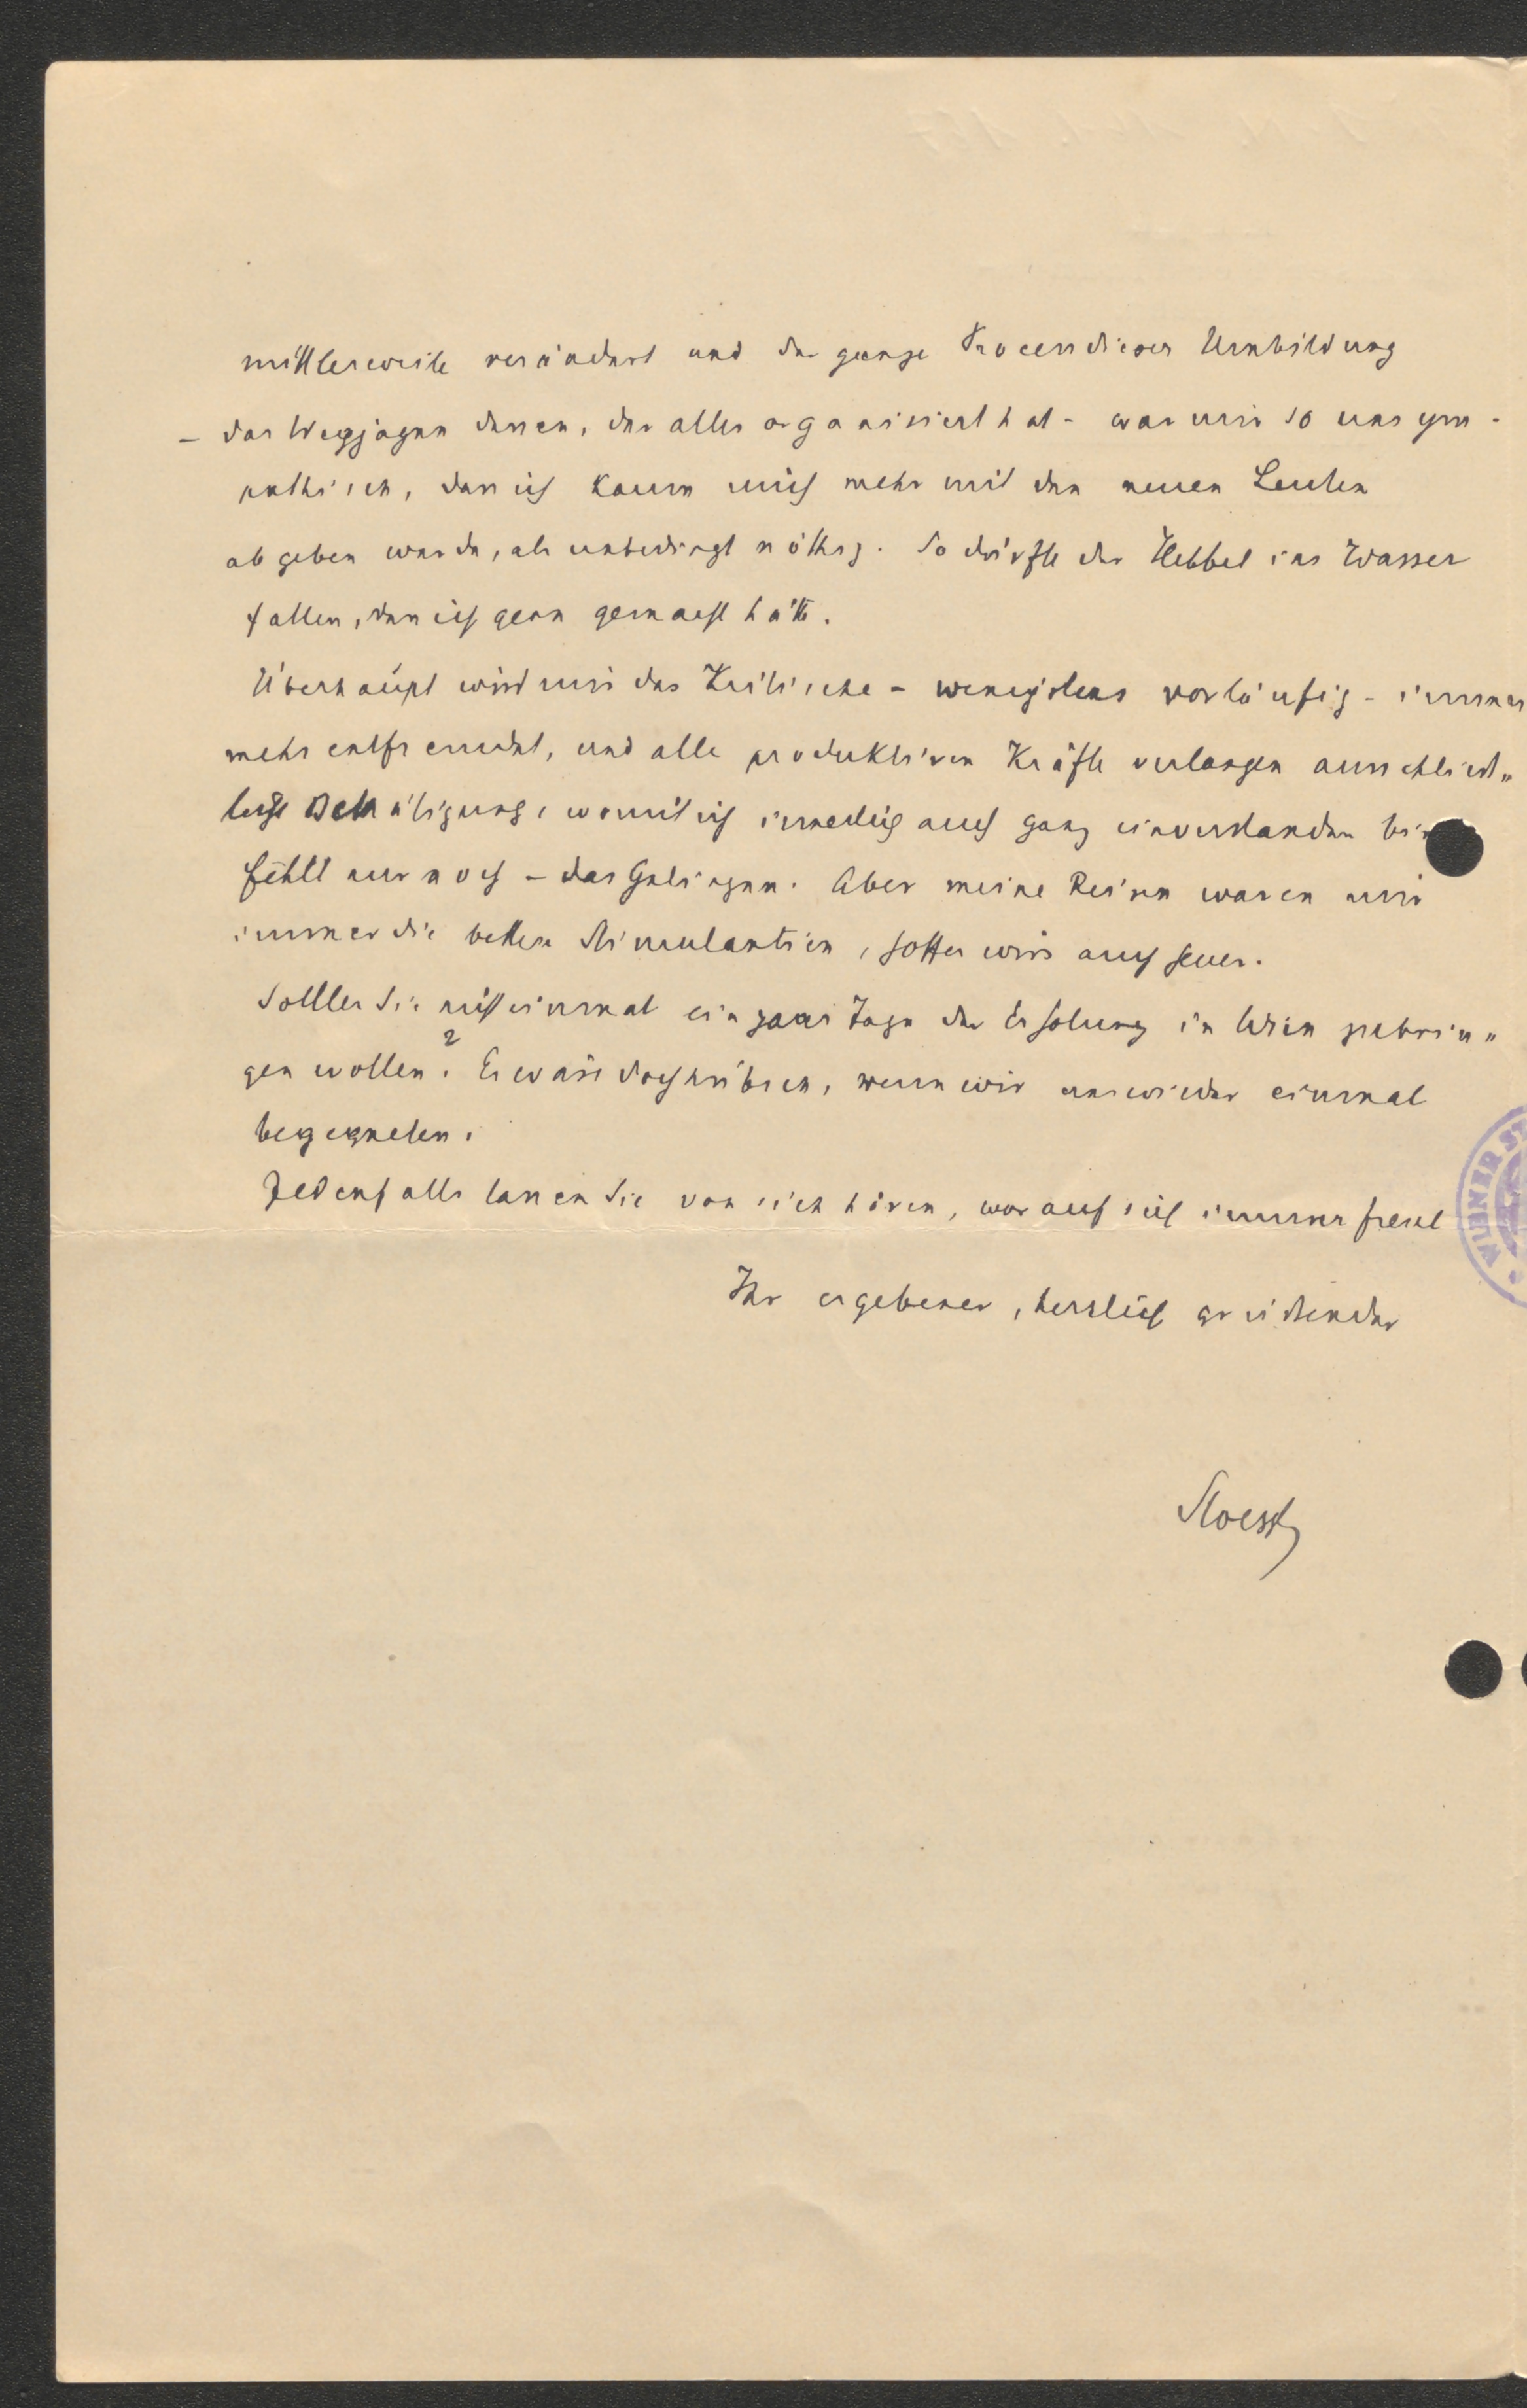 mittlerweile verändert und der ganze Process dieser Umbildung
– das Wegjagen dessen, der alles organisiert hat – war mir so unsym-
pathisch, dass ich kaum mich mehr mit den neuen Leuten
abgeben werde, als unbedingt nöthig. So dürfte der Hebbel ins Wasser
fallen, den ich gern gemacht hätte.
Überhaupt wird mir das Kritische – wenigstens vorläufig – immer
mehr entfremdet, und alle produktiven Kräfte verlangen ausschliess„
liche Bethätigung, womit ich innerlich auch ganz einverstanden bin
fehlt nur noch – das Gelingen. Aber meine Reisen waren mir
immer die besten Stimulantien, hoffen wirs auch heuer.
Sollten Sie nicht einmal ein paar Tage der Erholung in Wien zubrin„
gen wollen? Es wäre doch hübsch, wenn wir uns wieder einmal
begegneten.
Jedenfalls lassen Sie von sich hören, worauf sich immer freut
Ihr ergebener, herzlich grüssender
Stoessl
WIENER ST